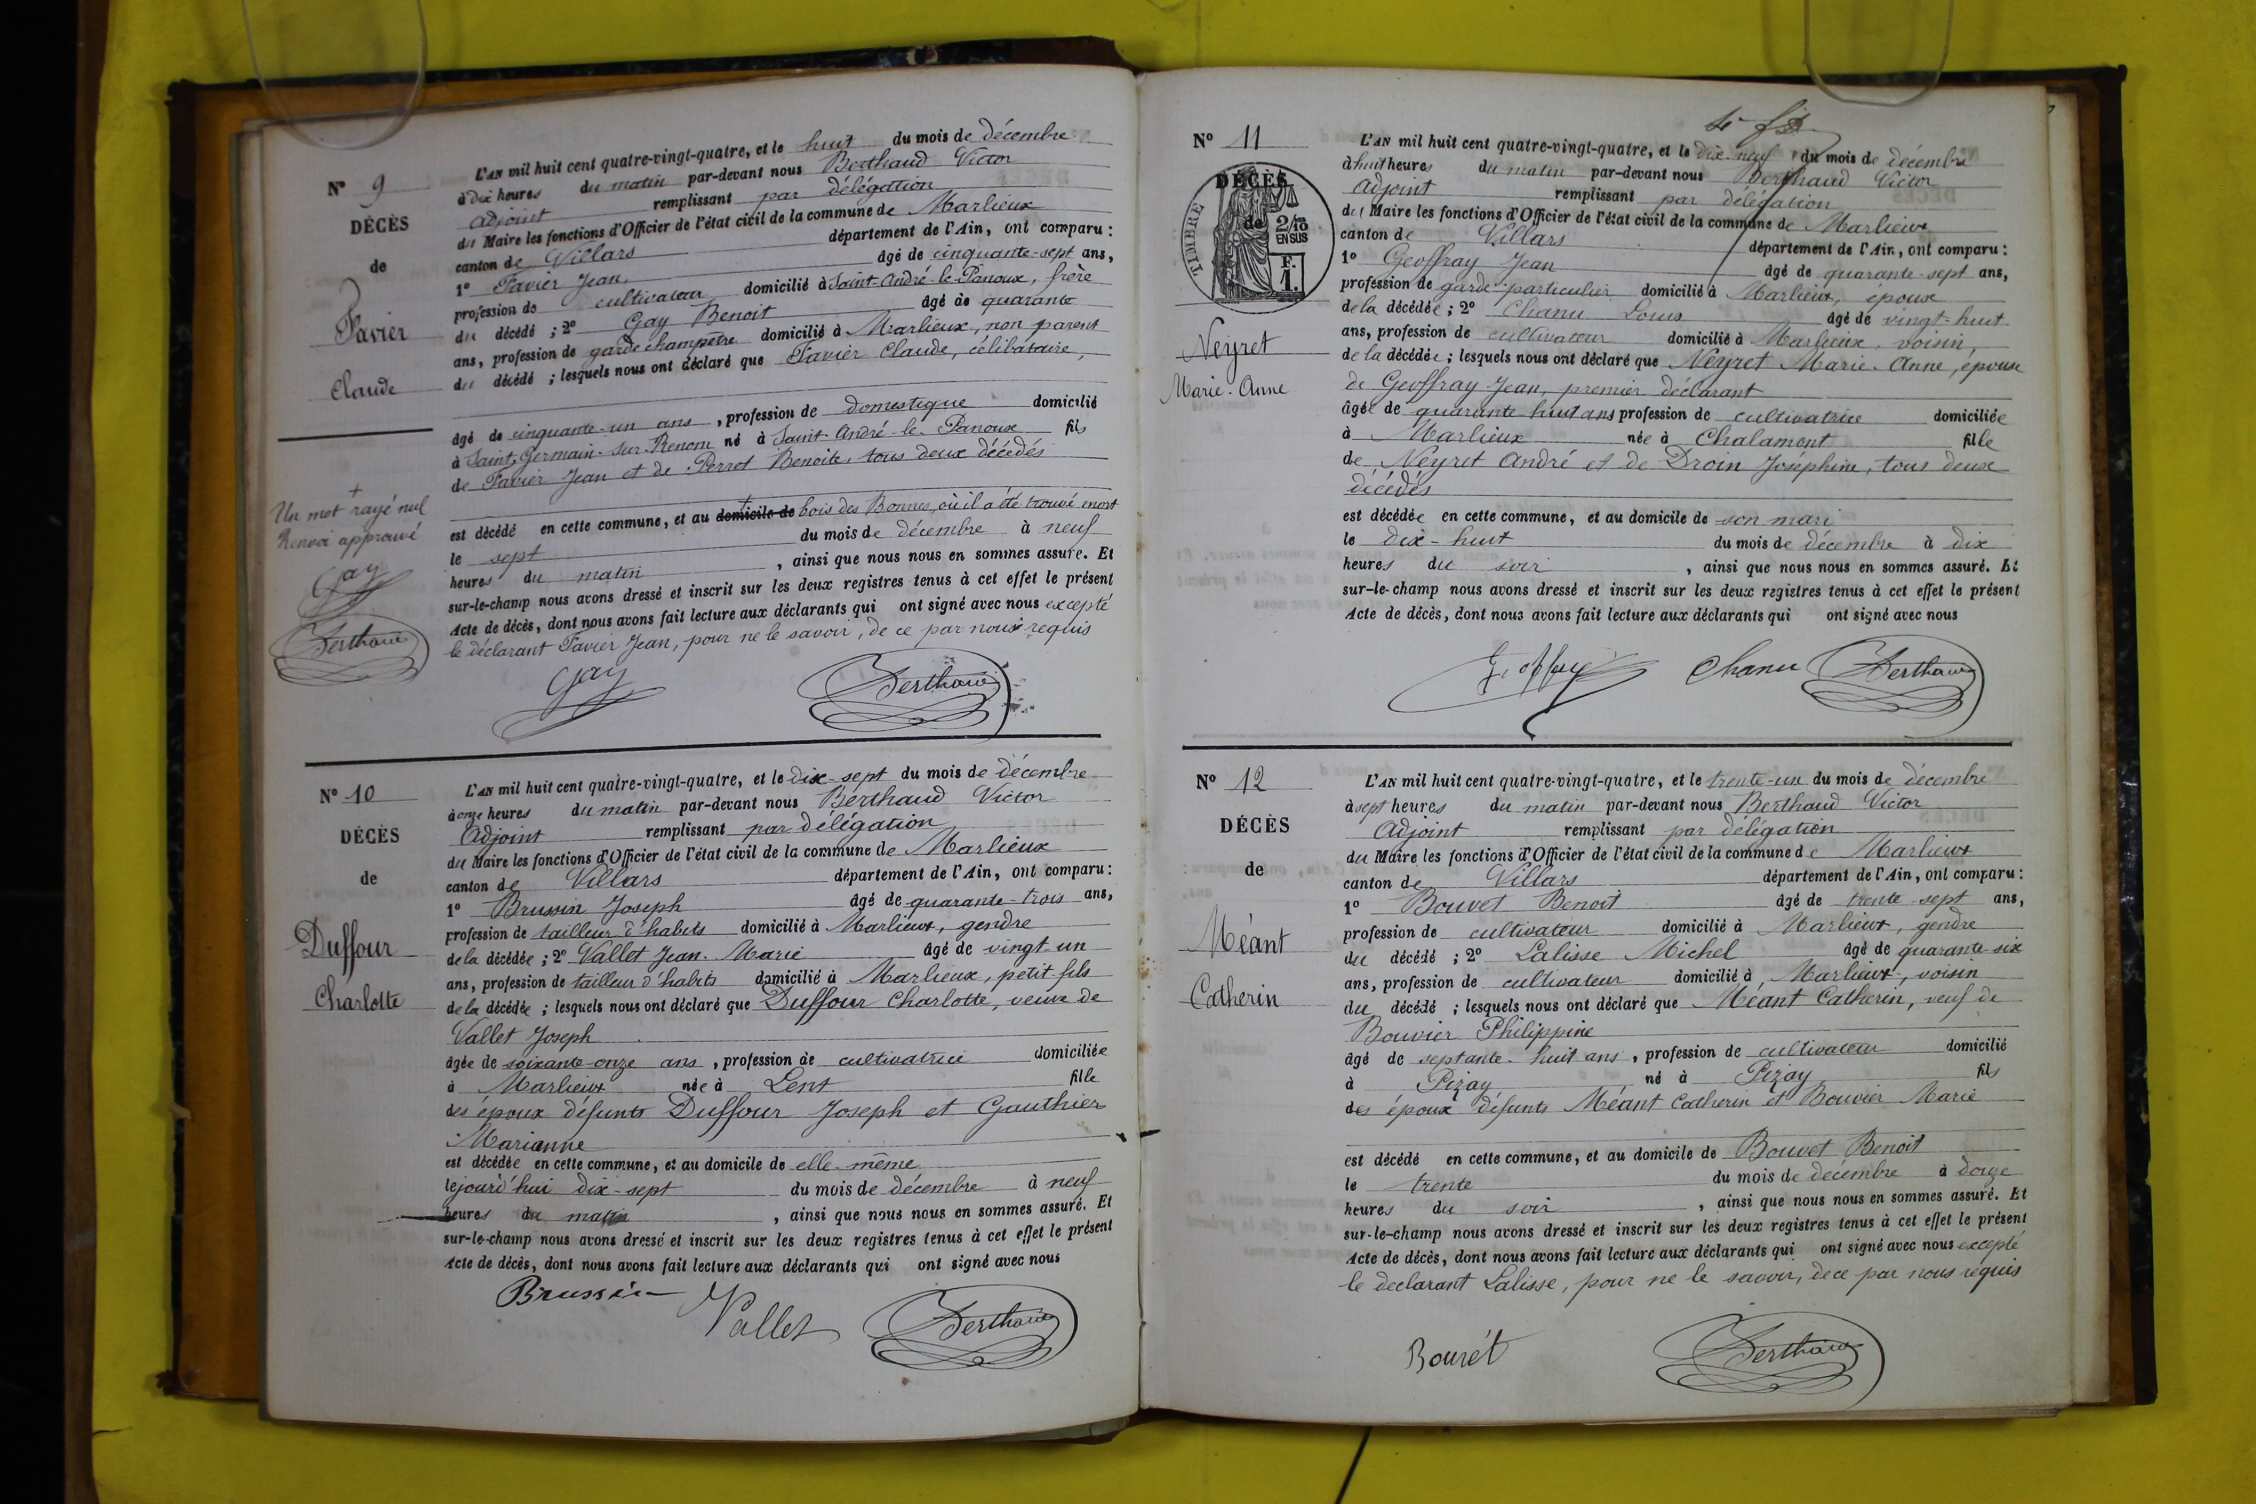 N° 9
DÉCÈS
de
Favier
Claude
+
Un mot rayé nul
Renvoi approuvé
Gay
Berthaud
L'AN mil huit cent quatre-vingt-quatre, et le huit du mois de décembre
à dix heures du matin par-devant nous Berthaud Victor
adjoint remplissant par délégation
du Maire les fonctions d'Officier de l'état civil de la commune de Marlieux
canton de Villars département de l'Ain, ont comparu :
1° Favier Jean âgé de cinquante-sept ans,
profession de cultivateur domicilié à Saint-André-le-Panoux, frère
du décédé ; 2° Gay Benoit âgé de quarante
ans, profession de garde champêtre domicilié à Marlieux, non parent
du décédé ; lesquels nous ont déclaré que Favier Claude, célibataire,
âgé de cinquante-un ans, profession de domestique domicilié
à Saint-Germain-sur-Renom né à Saint-André-le-Panoux fils
de Favier Jean et de Perrot Benoite, tous deux décédés
est décédé en cette commune, et au domicile de + bois des Bonnes, où il a été trouvé mort
le sept du mois de décembre à neuf
heures du matin, ainsi que nous nous en sommes assuré. Et
sur-le-champ nous avons dressé et inscrit sur les deux registres tenus à cet effet le présent
Acte de décès, dont nous avons fait lecture aux déclarants qui ont signé avec nous excepté
le déclarant Favier Jean, pour ne le savoir, de ce par nous requis
Gay Berthaud
N° 10
DÉCÈS
de
Duffour
Charlotte
L'AN mil huit cent quatre-vingt-quatre, et le dix-sept du mois de décembre
à onze heures du matin par-devant nous Berthaud Victor
Adjoint remplissant par délégation
du Maire les fonctions d'Officier de l'état civil de la commune de Marlieux
canton de Villars département de l'Ain, ont comparu :
1° Brussin Joseph âgé de quarante-trois ans,
profession de tailleur d'habits domicilié à Marlieux, gendre
de la décédée ; 2° Vallet Jean-Marie âgé de vingt un
ans, profession de tailleur d'habits domicilié à Marlieux, petit fils
de la décédée ; lesquels nous ont déclaré que Duffour Charlotte, veuve de
Vallet Joseph
âgée de soixante-onze ans, profession de cultivatrice domiciliée
à Marlieux née à Lent fille
des époux défunts Duffour Joseph et Gauthier
Marianne
est décédée en cette commune, et au domicile de elle-même
le jourd'hui dix-sept du mois de décembre à neuf
heures du matin, ainsi que nous nous en sommes assuré. Et
sur-le-champ nous avons dressé et inscrit sur les deux registres tenus à cet effet le présent
Acte de décès, dont nous avons fait lecture aux déclarants qui ont signé avec nous
Brussin Vallet Berthaud
N° 11
DÉCÈS
de
TIMBRE
2/10
EN SUS
F.
1.
Neyret
Marie-Anne
L'AN mil huit cent quatre-vingt-quatre, et le dix-neuf du mois de décembre
à huit heures du matin par-devant nous Berthaud Victor
adjoint remplissant par délégation
du Maire les fonctions d'Officier de l'état civil de la commune de Marlieux
canton de Villars département de l'Ain, ont comparu :
1° Geoffray Jean âgé de quarante-sept ans,
profession de garde-particulier domicilié à Marlieux, époux
de la décédée ; 2° Chanu Louis âgé de vingt-huit
ans, profession de cultivateur domicilié à Marlieux, voisin,
de la décédée ; lesquels nous ont déclaré que Neyret Marie-Anne, épouse
de Geoffray Jean, premier déclarant
âgée de quarante huit ans profession de cultivatrice domiciliée
à Marlieux née à Chalamont fille
de Neyret André et de Droin Joséphine, tous deux
décédés
est décédée en cette commune, et au domicile de son mari
le dix-huit du mois de décembre à dix
heures du soir, ainsi que nous nous en sommes assuré. Et
sur-le-champ nous avons dressé et inscrit sur les deux registres tenus à cet effet le présent
Acte de décès, dont nous avons fait lecture aux déclarants qui ont signé avec nous
Geoffray Chanu Berthaud
N° 12
DÉCÈS
de
Méant
Catherin
L'AN mil huit cent quatre-vingt-quatre, et le trente-un du mois de décembre
à sept heures du matin par-devant nous Berthaud Victor
Adjoint remplissant par délégation
du Maire les fonctions d'Officier de l'état civil de la commune de Marlieux
canton de Villars département de l'Ain, ont comparu :
1° Bouvet Benoit âgé de trente-sept ans,
profession de cultivateur domicilié à Marlieux, gendre
du décédé ; 2° Lalisse Michel âgé de quarante six
ans, profession de cultivateur domicilié à Marlieux, voisin
du décédé ; lesquels nous ont déclaré que Méant Catherin, veuf de
Bouvier Philippine
âgé de septante-huit ans, profession de cultivateur domicilié
à Pizay né à Pizay fils
des époux défunts Méant Catherin et Bouvier Marie
est décédé en cette commune, et au domicile de Bouvet Benoit
le trente du mois de décembre à onze
heures du soir, ainsi que nous nous en sommes assuré. Et
sur-le-champ nous avons dressé et inscrit sur les deux registres tenus à cet effet le présent
Acte de décès, dont nous avons fait lecture aux déclarants qui ont signé avec nous excepté
le déclarant Lalisse, pour ne le savoir, de ce par nous requis
Bouvét Berthaud